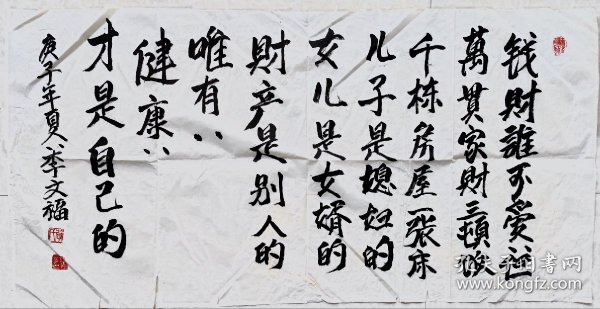 钱財誰不愛
萬贯家財三頓饭
千栋房屋一张床
儿子是媳妇的
女儿是女婿的
財产是别人的
唯有
健康
才是自己的
庚子年夏 李文福
孔夫子旧书网
www.kongfz.com